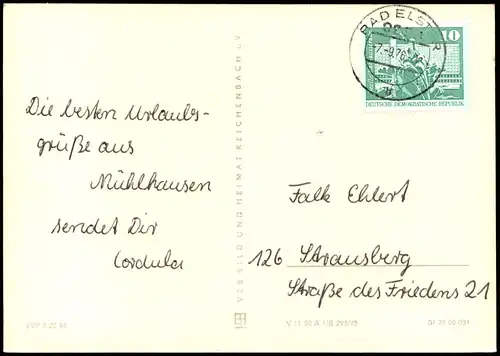 Die besten Urlaubs-
grüße aus
Mühlhausen
sendet Dir
Cordula
VEB BILD UND HEIMAT REICHENBACH i. V.
BAD ELSTER
10
DEUTSCHE DEMOKRATISCHE REPUBLIK
Falk Ehlert
126 Strausberg
Straße des Friedens 21